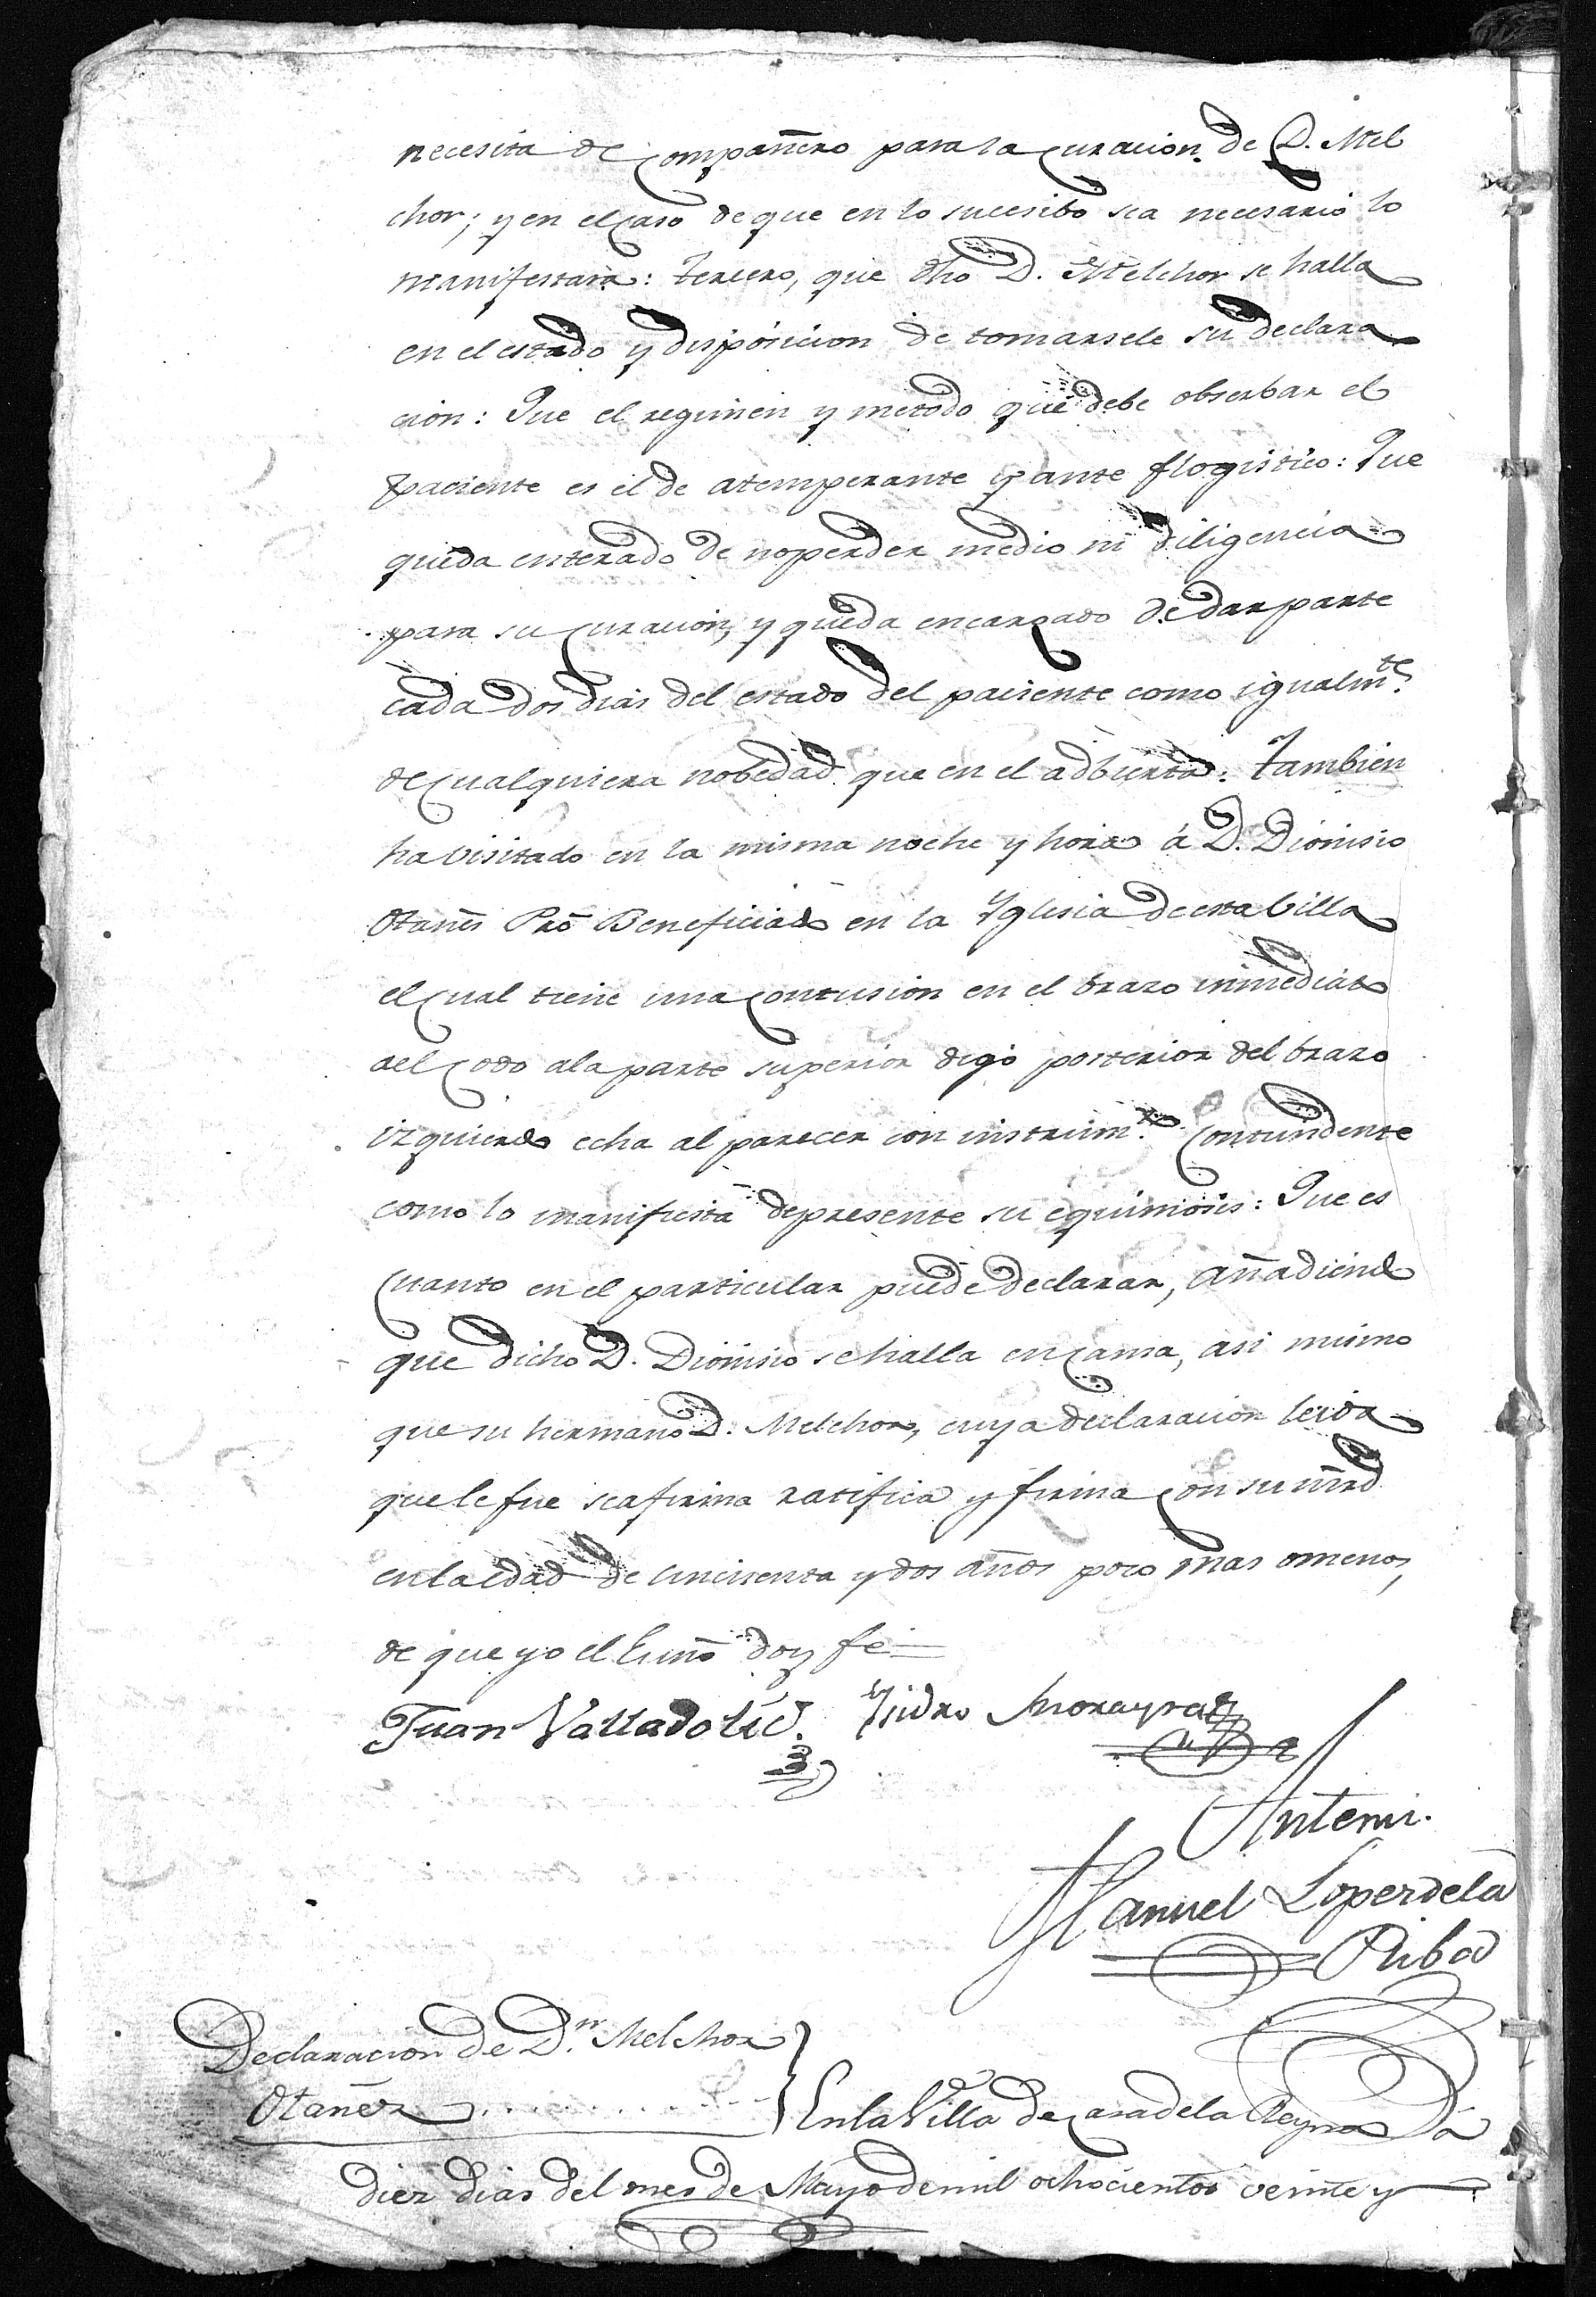 necesita de compañero para la curacion de D. Mel
chor; y en el caso de que en lo sucesibo sea necesario lo
manifestara: tercero, que dho D. Melchor se halla
en el estado y disposicion de tomarsele su declara
cion: Que el regimen y metodo que debe obserbar el
paciente es el de atemperante y ante flogistico: Que
queda enterado de no perder medio ni diligencia
para su curacion, y queda encargado de dar parte
cada dos dias del estado del paciente como igualmte.
de cualquiera nobedad que en el adbierta: Tambien
ha bisitado en la misma noche y hora á D. Dionisio
Otañes Pro Beneficiado en la Yglesia de esta billa
el cual tiene una contusion en el brazo inmediato
ael codo a la parte superior digo posterior del brazo
izquierdo echa al parecer con instrumto. contundente
como lo manifiesta de presente su equimosis: Que es
cuanto en el particular puede declarar, añadiendo
que dicho D. Dionisio se halla en cama, asi mismo
que su hermano D. Melchor, cuya declaracion leida
que le fue se afirma ratifica y firma con su mrd
en la edad de cincuenta y dos años poco mas o menos,
de que yo el Esno doy fe
Juan Valladolid. Ysidro Morayra
Antemi.
Manuel Lopez de la
Riba
Declaracion de Dn. Melchor
Otañez
En la Villa de Casa de la Reyna á
diez dias del mes de Mayo de mil ochocientos veinte y